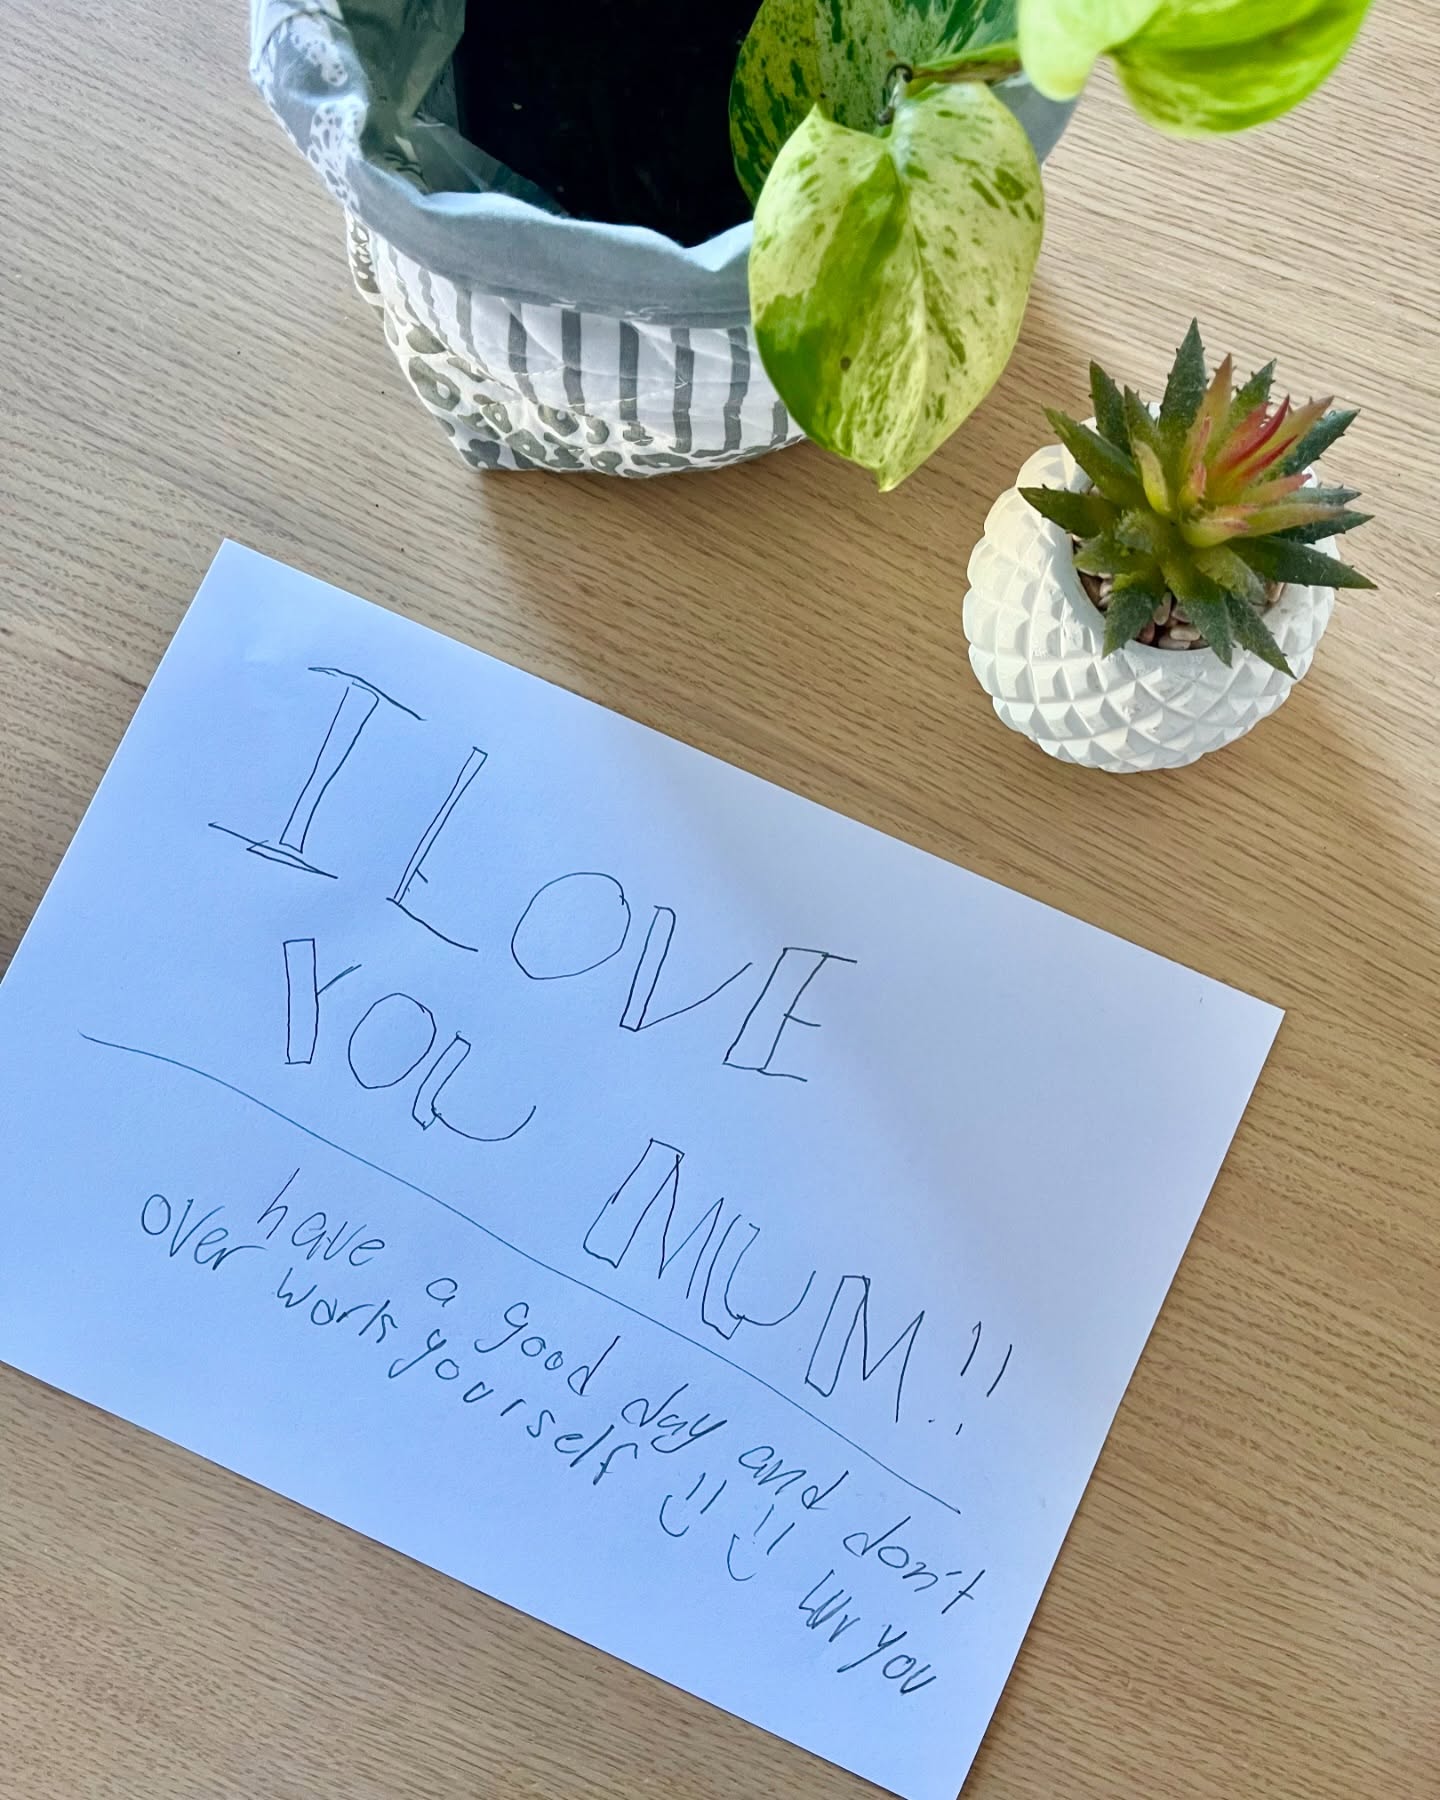 I LOVE
YOU MUM!!
have a good day and don't
over work yourself !! !! luv you